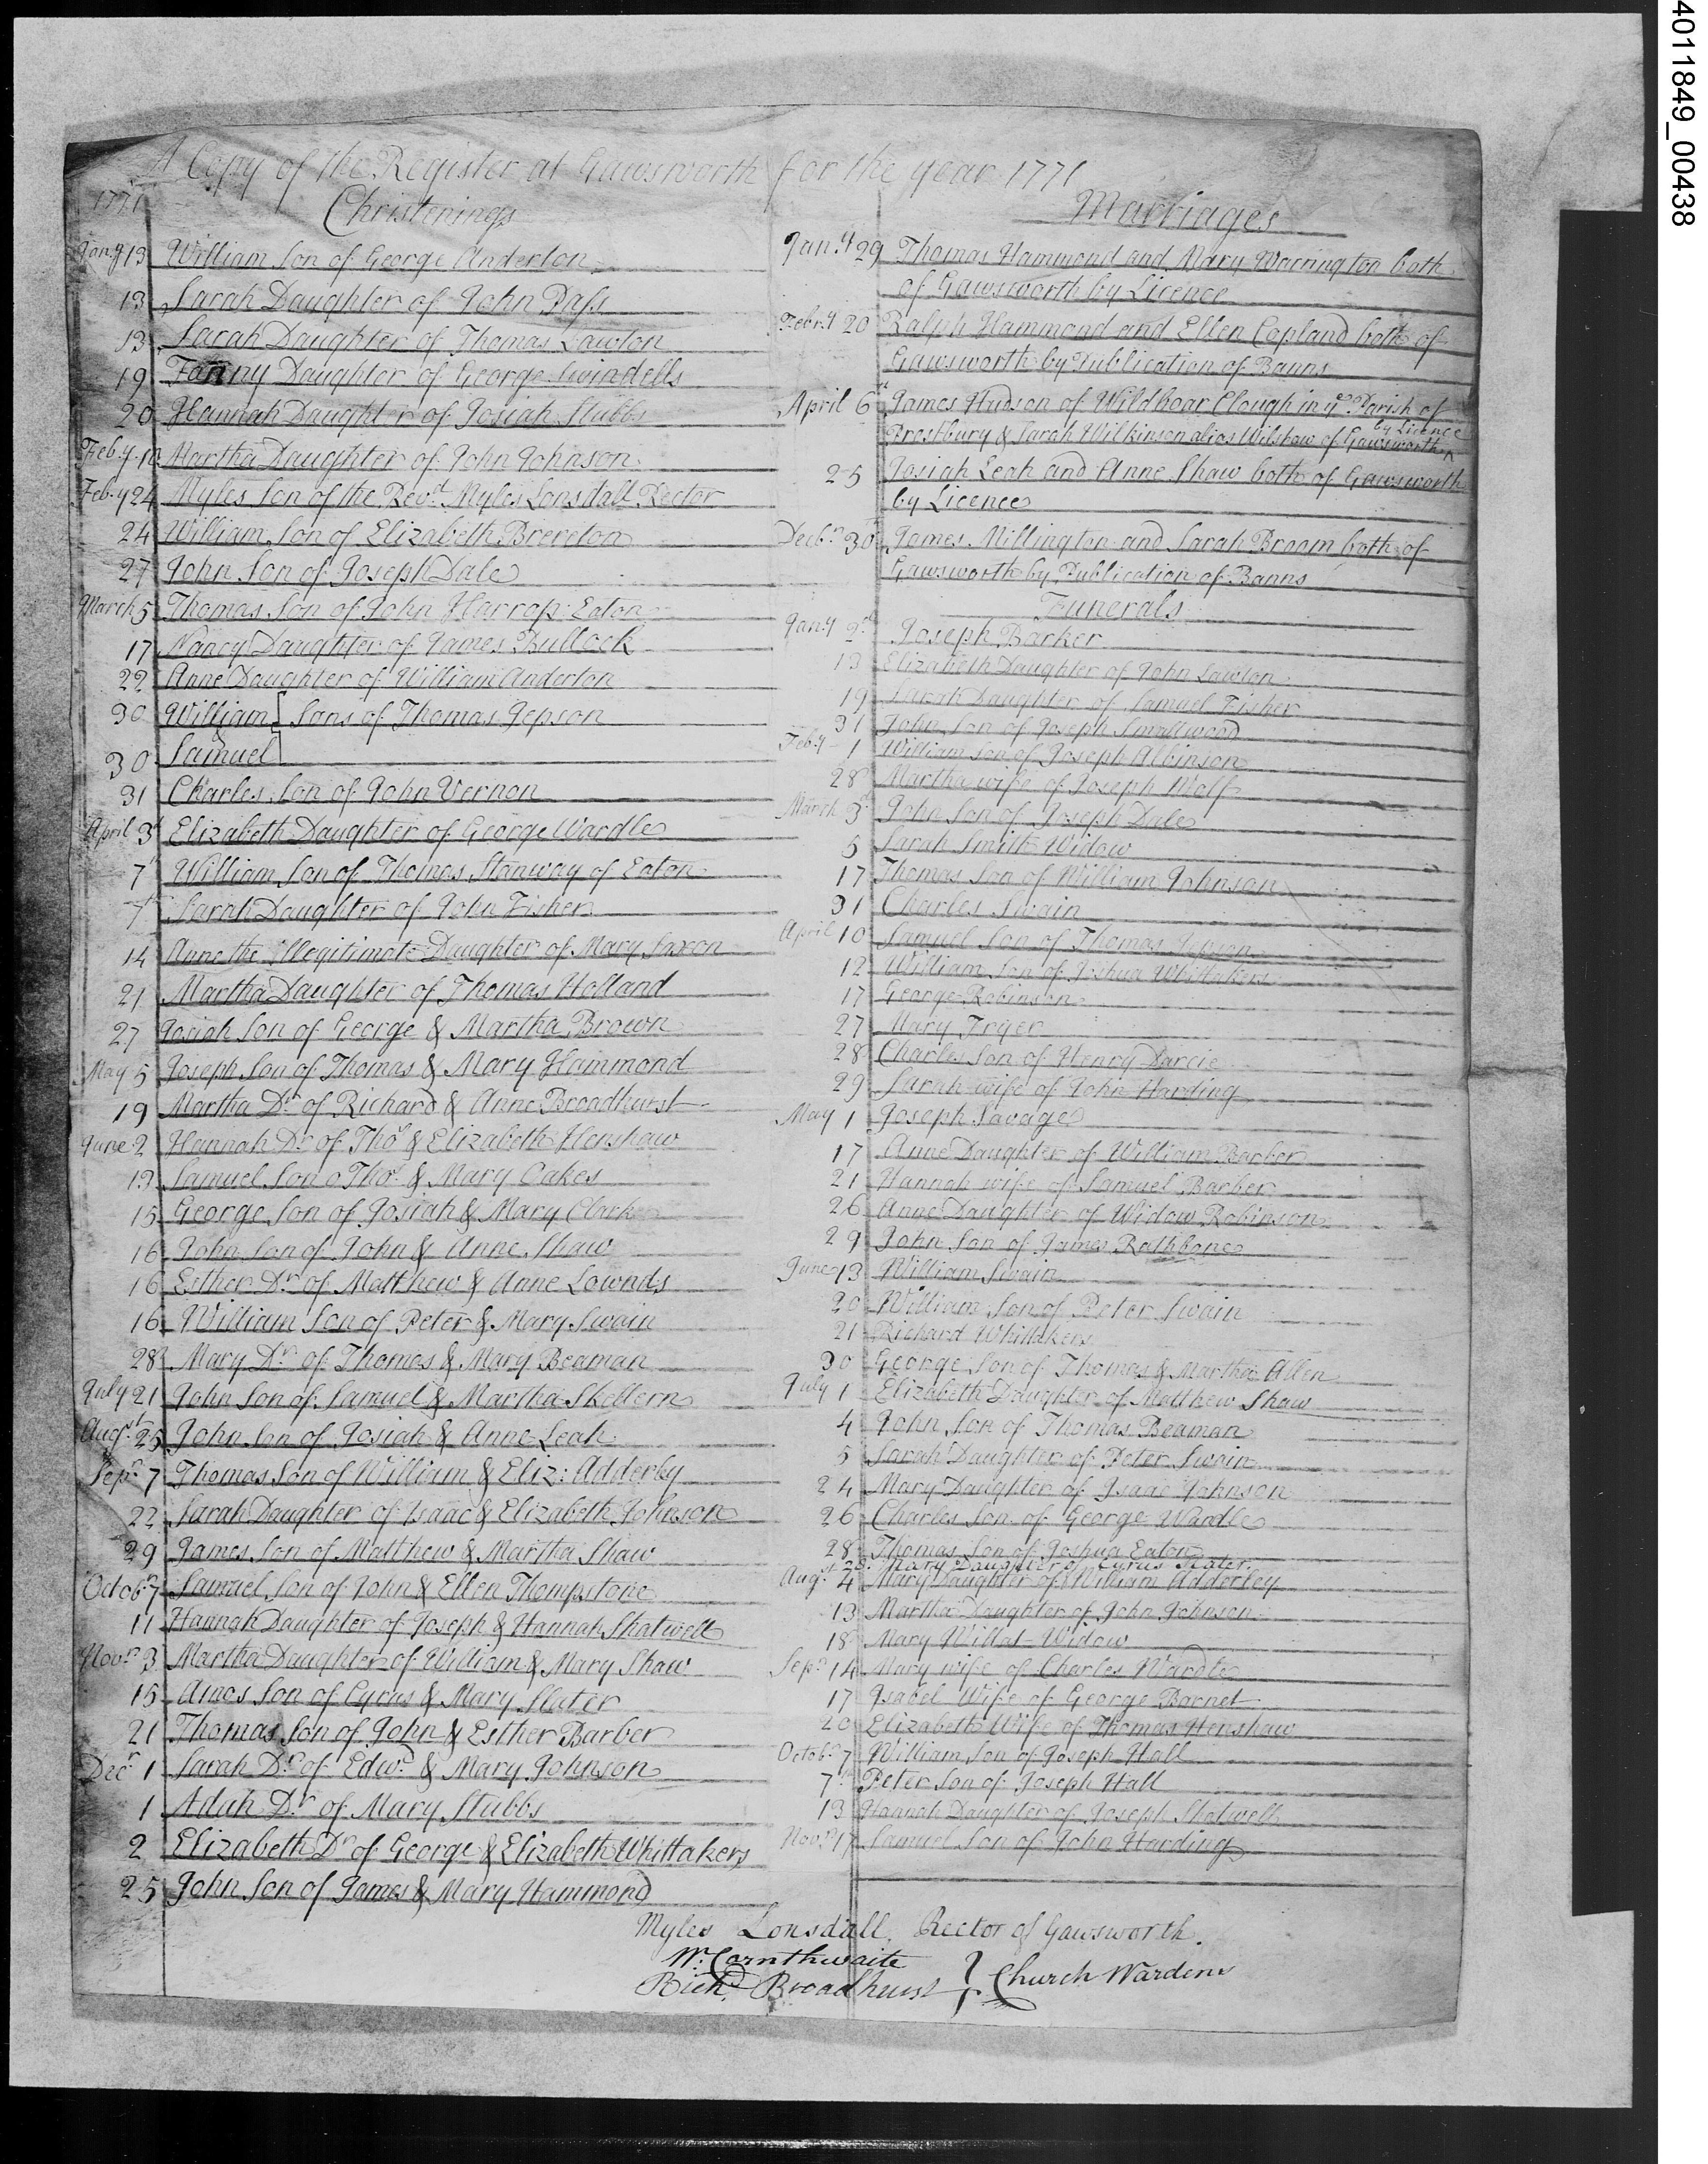 4011849_00438
A Copy of the Register at Gawsworth for the year 1771
1771
Christenings
Jan.y 13 William Son of George Anderton
13 Sarah Daughter of John Pass
13 Sarah Daughter of Thomas Lawton
19 Fanny Daughter of George Swindells
20 Hannah Daughter of Josiah Stubbs
Feb.y 10 Martha Daughter of John Johnson
Feb.y 24 Myles Son of the Rev.d Myles Lonsdall Rector
24 William Son of Elizabeth Brereton
27 John Son of Joseph Dale
March 5 Thomas Son of John Harrop Eaton
17 Nancy Daughter of James Bullock
22 Anne Daughter of William Anderton
30 William Sons of Thomas Jepson
&
30 Samuel
31 Charles Son of John Vernon
April 3d Elizabeth Daughter of George Wardle
7th William Son of Thomas Stanway of Eaton
7th Sarah Daughter of John Fisher
14 Anne the Illegitimate Daughter of Mary Saxon
21 Martha Daughter of Thomas Holland
27 Josiah Son of George & Martha Brown
May 5 Joseph Son of Thomas & Mary Hammond
19 Martha Dr of Richard & Anne Broadhurst
June 2 Hannah Dr of Thos & Elizabeth Henshaw
13 Samuel Son o Thos & Mary Oakes
15 George Son of Josiah & Mary Clark
16 John Son of John & Anne Shaw
16 Esther Dr of Matthew & Anne Lownds
16 William Son of Peter & Mary Swain
28 Mary Dr of Thomas & Mary Beaman
July 21 John Son of Samuel & Martha Skellern
Augst 25 John Son of Josiah & Anne Leah
Sepr 7 Thomas Son of William & Eliz: Adderby
22 Sarah Daughter of Isaac & Elizabeth Johnson
29 James Son of Matthew & Martha Shaw
Octobr 7 Samuel Son of John & Ellen Thompstone
11 Hannah Daughter of Joseph & Hannah Shatwell
Novr 3 Martha Daughter of William & Mary Shaw
15 Amos Son of Cyrus & Mary Slater
21 Thomas Son of John & Esther Barber
Decr 1 Sarah Dr of Edwd & Mary Johnson
1 Aduh Dr of Mary Stubbs
2 Elizabeth Dr of George & Elizabeth Whittakers
25 John Son of James & Mary Hammond
Marriages
Jan.y 29 Thomas Hammond and Mary Warrington both
of Gawsworth by Licence
Febr.y 20 Ralph Hammond and Ellen Copland both of
Gawsworth by Publication of Banns
April 6th James Hudson of Wildboar Clough in ye Parish of
by Licence
Prestbury & Sarah Wilkinson alias Wilshaw of Gawsworth ^
25 Josiah Leah and Anne Shaw both of Gawsworth
by Licence
Decbr 30th James Millington and Sarah Broom both of
Gawsworth by Publication of Banns
Funerals
Jan.y 2d Joseph Barker
13 Elizabeth Daughter of John Lawton
19 Sarah Daughter of Samuel Fisher
31 John Son of Joseph Smallwood
Feb.y 1 William Son of Joseph Albinson
28 Martha wife of Joseph Wolf
March 3d John Son of Joseph Dale
5 Sarah Smith Widow
17 Thomas Son of William Johnson
31 Charles Swain
April 10 Samuel Son of Thomas Jepson
12 William Son of Joshua Whittakers
17 George Robinson
27 Mary Fryer
28 Charles Son of Henry Darcie
29 Sarah wife of John Harding
May 1 Joseph Savage
17 Anne Daughter of William Barber
21 Hannah wife of Samuel Barber
26 Anne Daughter of Widow Robinson
29 John Son of James Rathbone
June 13 William Swain
20 William Son of Peter Swain
21 Richard Whittakers
30 George Son of Thomas & Martha Allen
July 1 Elizabeth Daughter of Matthew Shaw
4 John Son of Thomas Beaman
5 Sarah Daughter of Peter Swain
24 Mary Daughter of Isaac Johnson
26 Charles Son of George Wardle
28 Thomas Son of Joshua Eaton
28 Mary Daughter of Cyrus Slater
Augst 4 Mary Daughter of William Adderley
13 Martha Daughter of John Johnson
18 Mary Willat Widow
Sepr 14 Mary wife of Charles Wardle
17 Isabel Wife of George Barnet
20 Elizabeth Wife of Thomas Henshaw
Octobr 7 William Son of Joseph Hall
7th Peter Son of Joseph Hall
13 Hannah Daughter of Joseph Shatwell
Novr 17 Samuel Son of John Harding
Myles Lonsdall, Rector of Gawsworth.
Wm Cornthwaite
Richd Broadhurst } Church Wardens